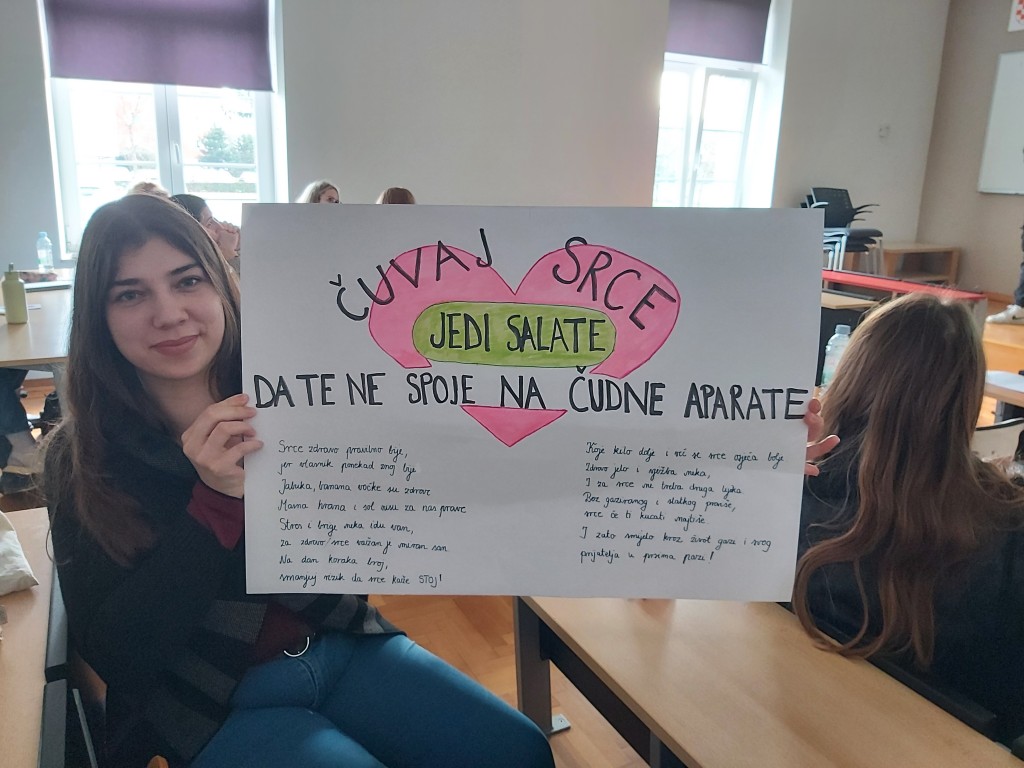 ČUVAJ SRCE
JEDI SALATE
DA TE NE SPOJE NA ČUDNE APARATE
Srce zdravo pravilno bije,
jer vlasnik ponekad znoj lije
Jabuka, banana voćke su zdrave
Masna hrana i sol nisu za nas prave
Stres i brige neka idu van,
za zdravo srce važan je miran san
Na dan koraka broj,
smanjuj rizik da srce kaže STOJ!
Koje kilo dolje i već se srce osjeća bolje
Zdravo jelo i vježba neka,
I za srce ne treba druga lijeka
Bez gaziranog i slatkog probaj,
srce će ti kucati
I zato smijelo kroz život gazi i svog
prijatelja u prsima pazi!